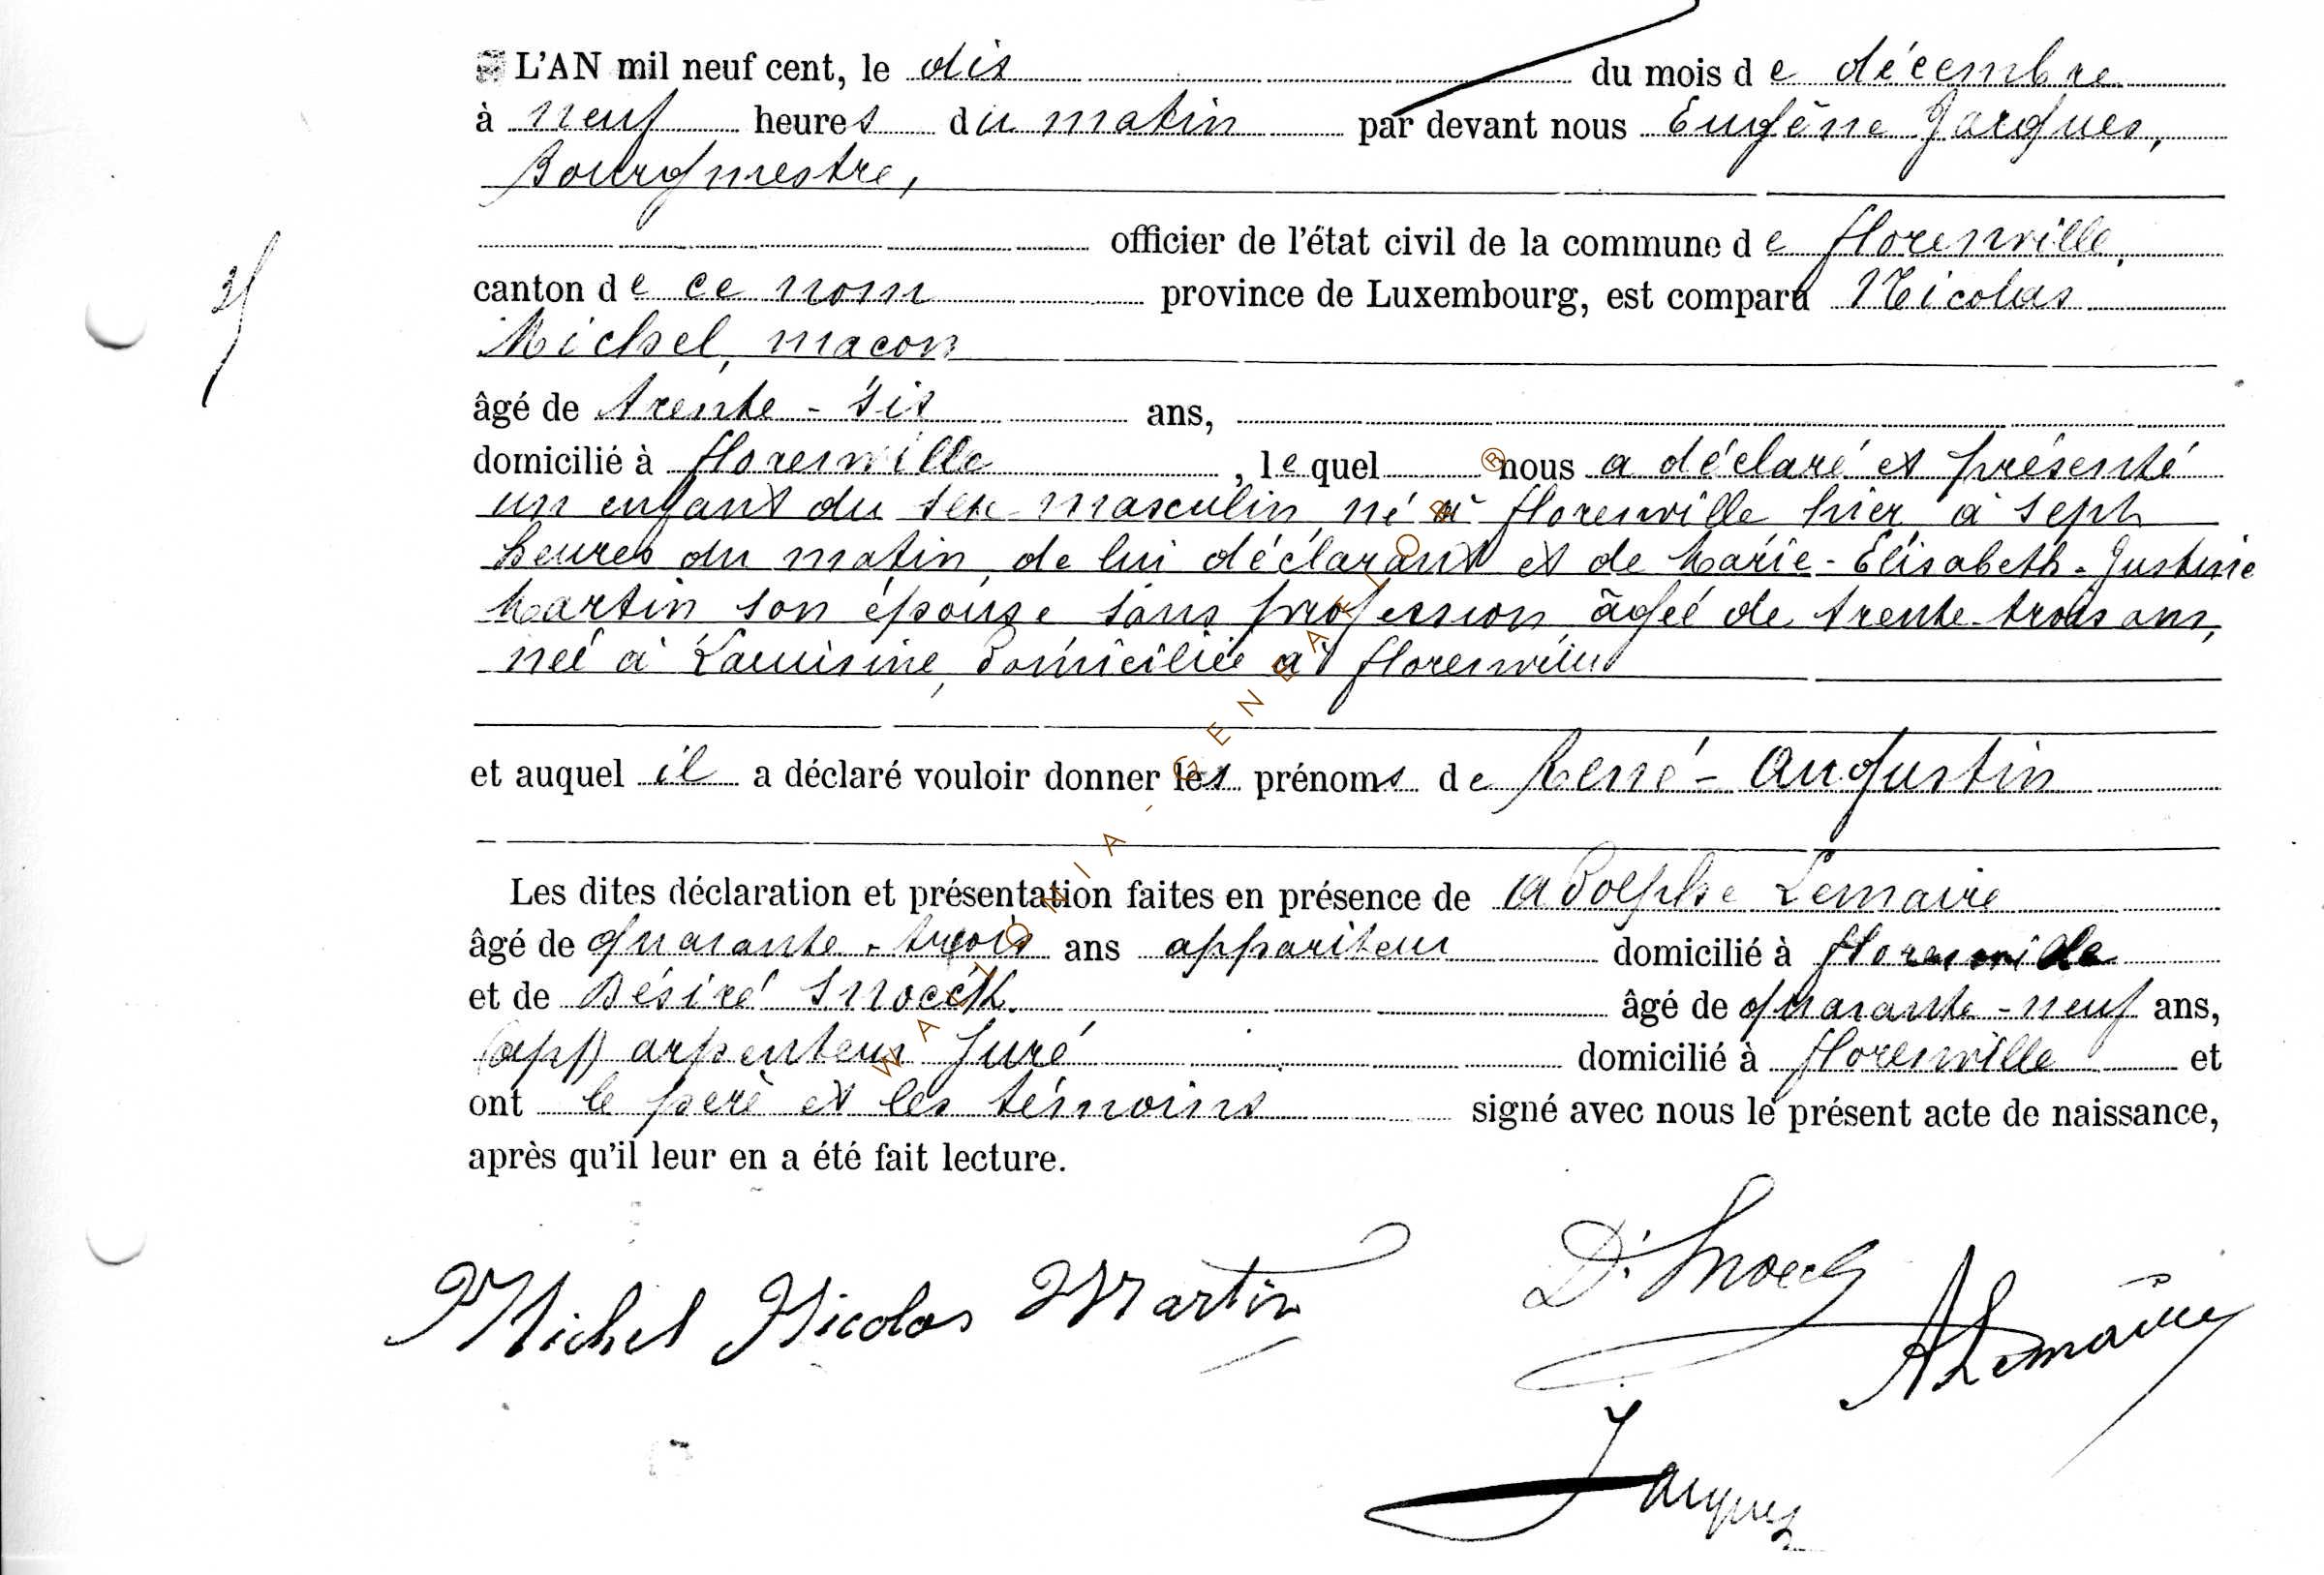 L'AN mil neuf cent, le dix du mois de décembre
à neuf heures du matin par devant nous Eugène Jacques,
Bourgmestre,
officier de l'état civil de la commune de florenville,
canton de ce nom province de Luxembourg, est comparu Nicolas
Michel, macon
âgé de trente-six ans,
domicilié à florenville, lequel nous a déclaré et présenté
un enfant du sexe masculin, né à florenville hier à sept
heures du matin, de lui déclarant et de Marie-Elisabeth-Justine
Martin son épouse sans profession âgée de trente-trois ans,
née à Lacuisine, domiciliée à florenville
et auquel il a déclaré vouloir donner les prénoms de René-Augustin
Les dites déclaration et présentation faites en présence de Adolphe Lemaire
âgé de quarante-trois ans appariteur domicilié à florenville
et de Désiré Snoeck âgé de quarante-neuf ans,
(app) arpenteur juré domicilié à florenville et
ont le père et les témoins signé avec nous le présent acte de naissance,
après qu'il leur en a été fait lecture.
D. Snoeck
Michel Nicolas Martin
A Lemaire
Jacques
WALLONIA-GENEALOR®